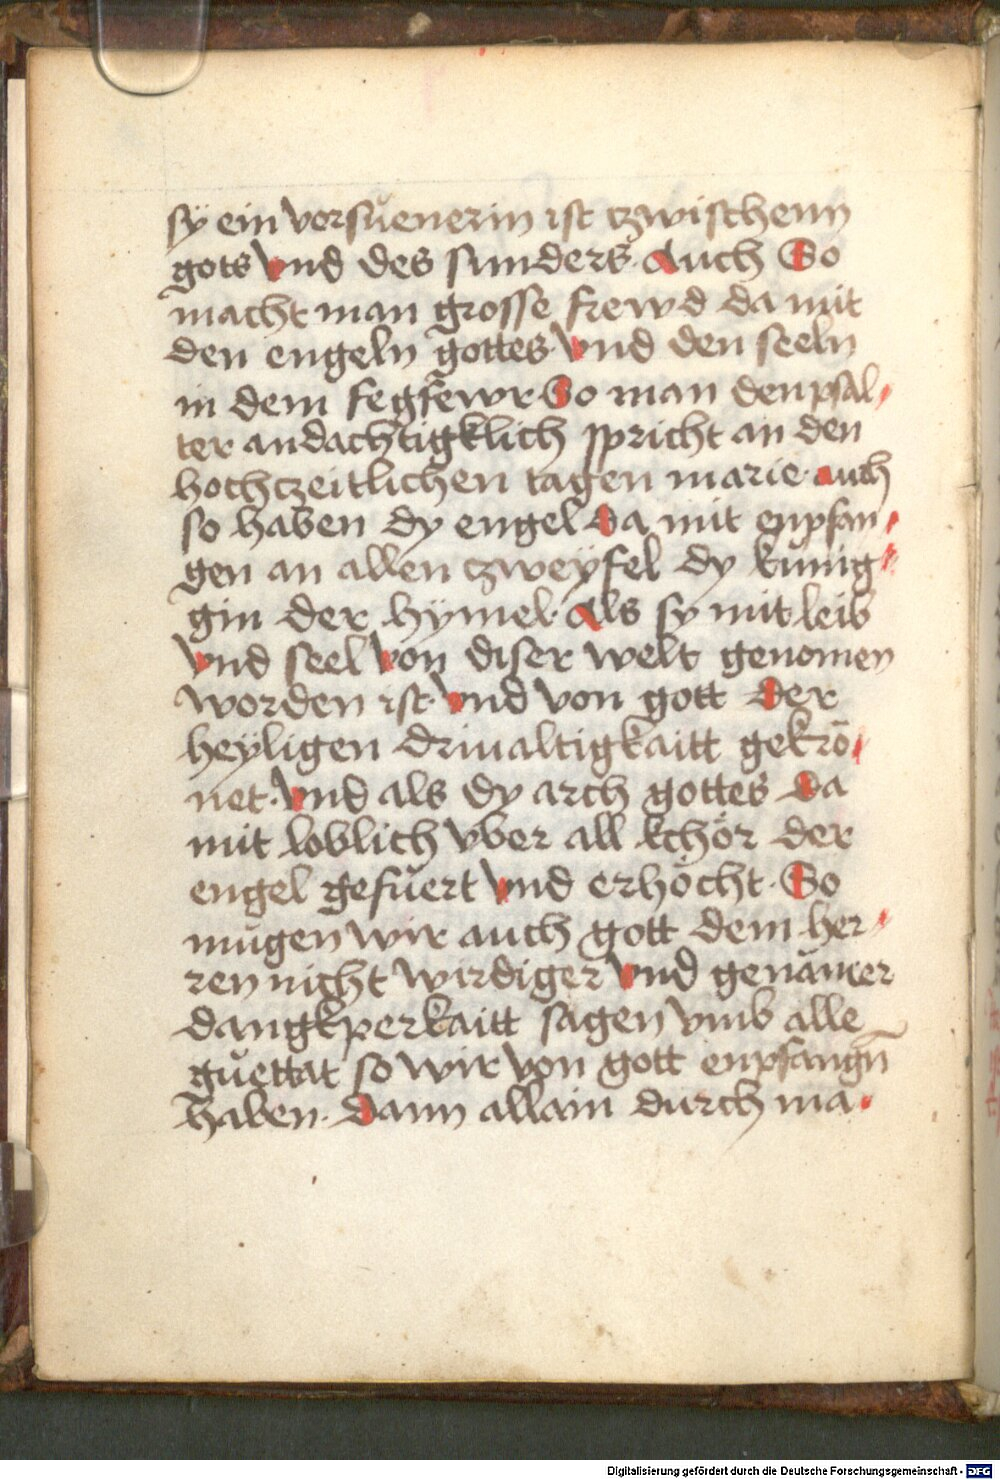 sÿ ein vorsůenerin ist czwischenn
gots vnd des sunders. Auch So
macht man grosse frewd da mit
den engeln gottes. vnd den seeln
in dem fegfewr So man den psal-
ter andachtigklich spricht an den
hochczeitlichen tagen marie. auch
so haben dy engel da mit enpfan-
gen an allen czweÿfel dy kunig-
gin der hÿmel. Als sy mit leib
vnd seel von diser welt genomen
worden ist. vnd von gott der
heÿligen driualtigkaitt gekrö-
net. vnd als dy arch gottes da
mit loblich vber all kchör der
engel gefůert vnd erhöcht. So
mugen wir auch gott dem her-
ren nicht wirdiger vnd genämer
dangkperkaitt sagen vmb alle
gůettat so wir von gott enpfangn̄
haben. dann allain durch ma-
Digitalisierung gefördert durch die Deutsche Forschungsgemeinschaft - DFG